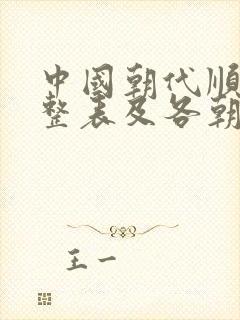 中國朝代順
整表及各朝
王一